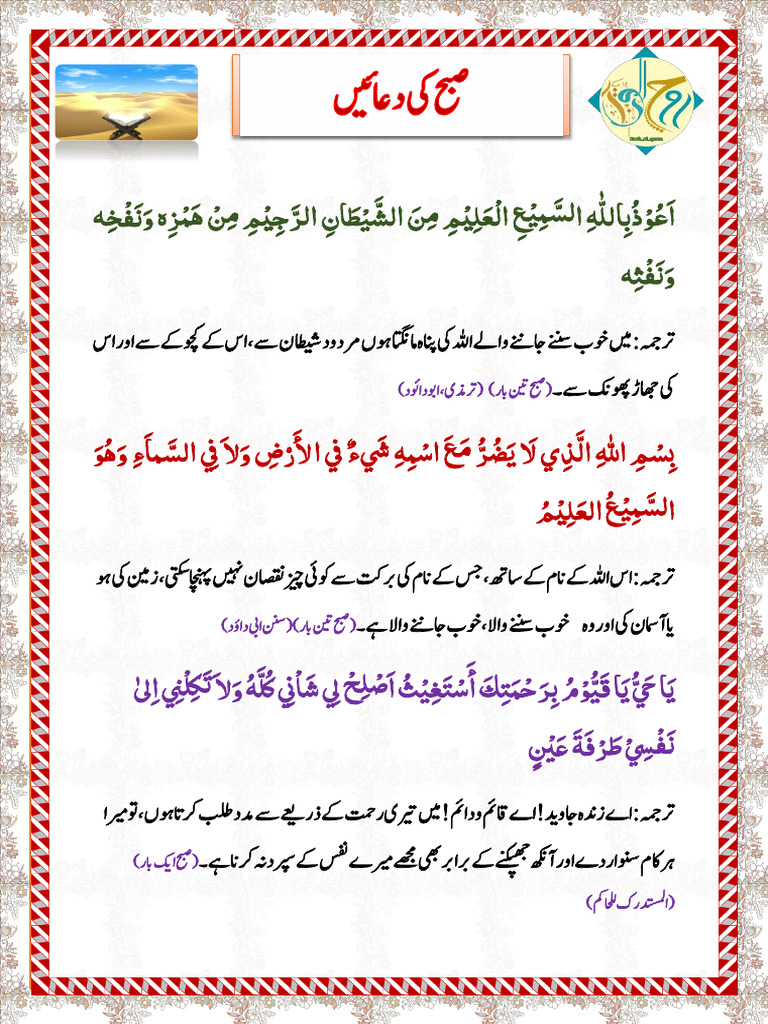 صبح کی دعائیں
اَعُوْذُبِاللّٰهِ السَّمِيْعِ الْعَلِيْمِ مِنَ الشَّيْطَانِ الرَّجِيْمِ مِنْ هَمْزِه وَنَفْخِه
وَنَفْثِه
ترجمہ: میں خوب سننے جاننے والے اللہ کی پناہ مانگتا ہوں مردود شیطان سے، اس کے کچوکے سے اور اس
کی جھاڑ پھونک سے۔ (صبح تین بار) (ترمذی، ابو دائود)
بِسْمِ اللهِ الَّذِي لَا يَضُرُّ مَعَ اسْمِهِ شَيءٌ فِي الأَرْضِ وَلاَ فِي السَّماَءِ وَهُوَ
السَّمِيْعُ العَلِيْمُ
ترجمہ: اس اللہ کے نام کے ساتھ، جس کے نام کی برکت سے کوئی چیز نقصان نہیں پہنچا سکتی، زمین کی ہو
یا آسمان کی اور وہ خوب سننے والا، خوب جاننے والا ہے۔ (صبح تین بار) (سنن ابی داؤد)
يَا حَيُّ يَا قَيُّوْمُ بِرَحْمَتِكَ أَسْتَغِيْثُ اَصْلِحْ لِي شَاْنِي كُلَّهُ وَلاَ تَكِلْنِي اِلىٰ
نَفْسِيْ طَرْفَةَ عَيْنٍ
ترجمہ: اے زندہ جاوید! اے قائم و دائم! میں تیری رحمت کے ذریعے سے مدد طلب کرتا ہوں، تو میرا
ہر کام سنوار دے اور آنکھ جھپکنے کے برابر بھی مجھے میرے نفس کے سپرد نہ کرنا ہے۔ (صبح ایک بار)
(المستدرک للحاکم)